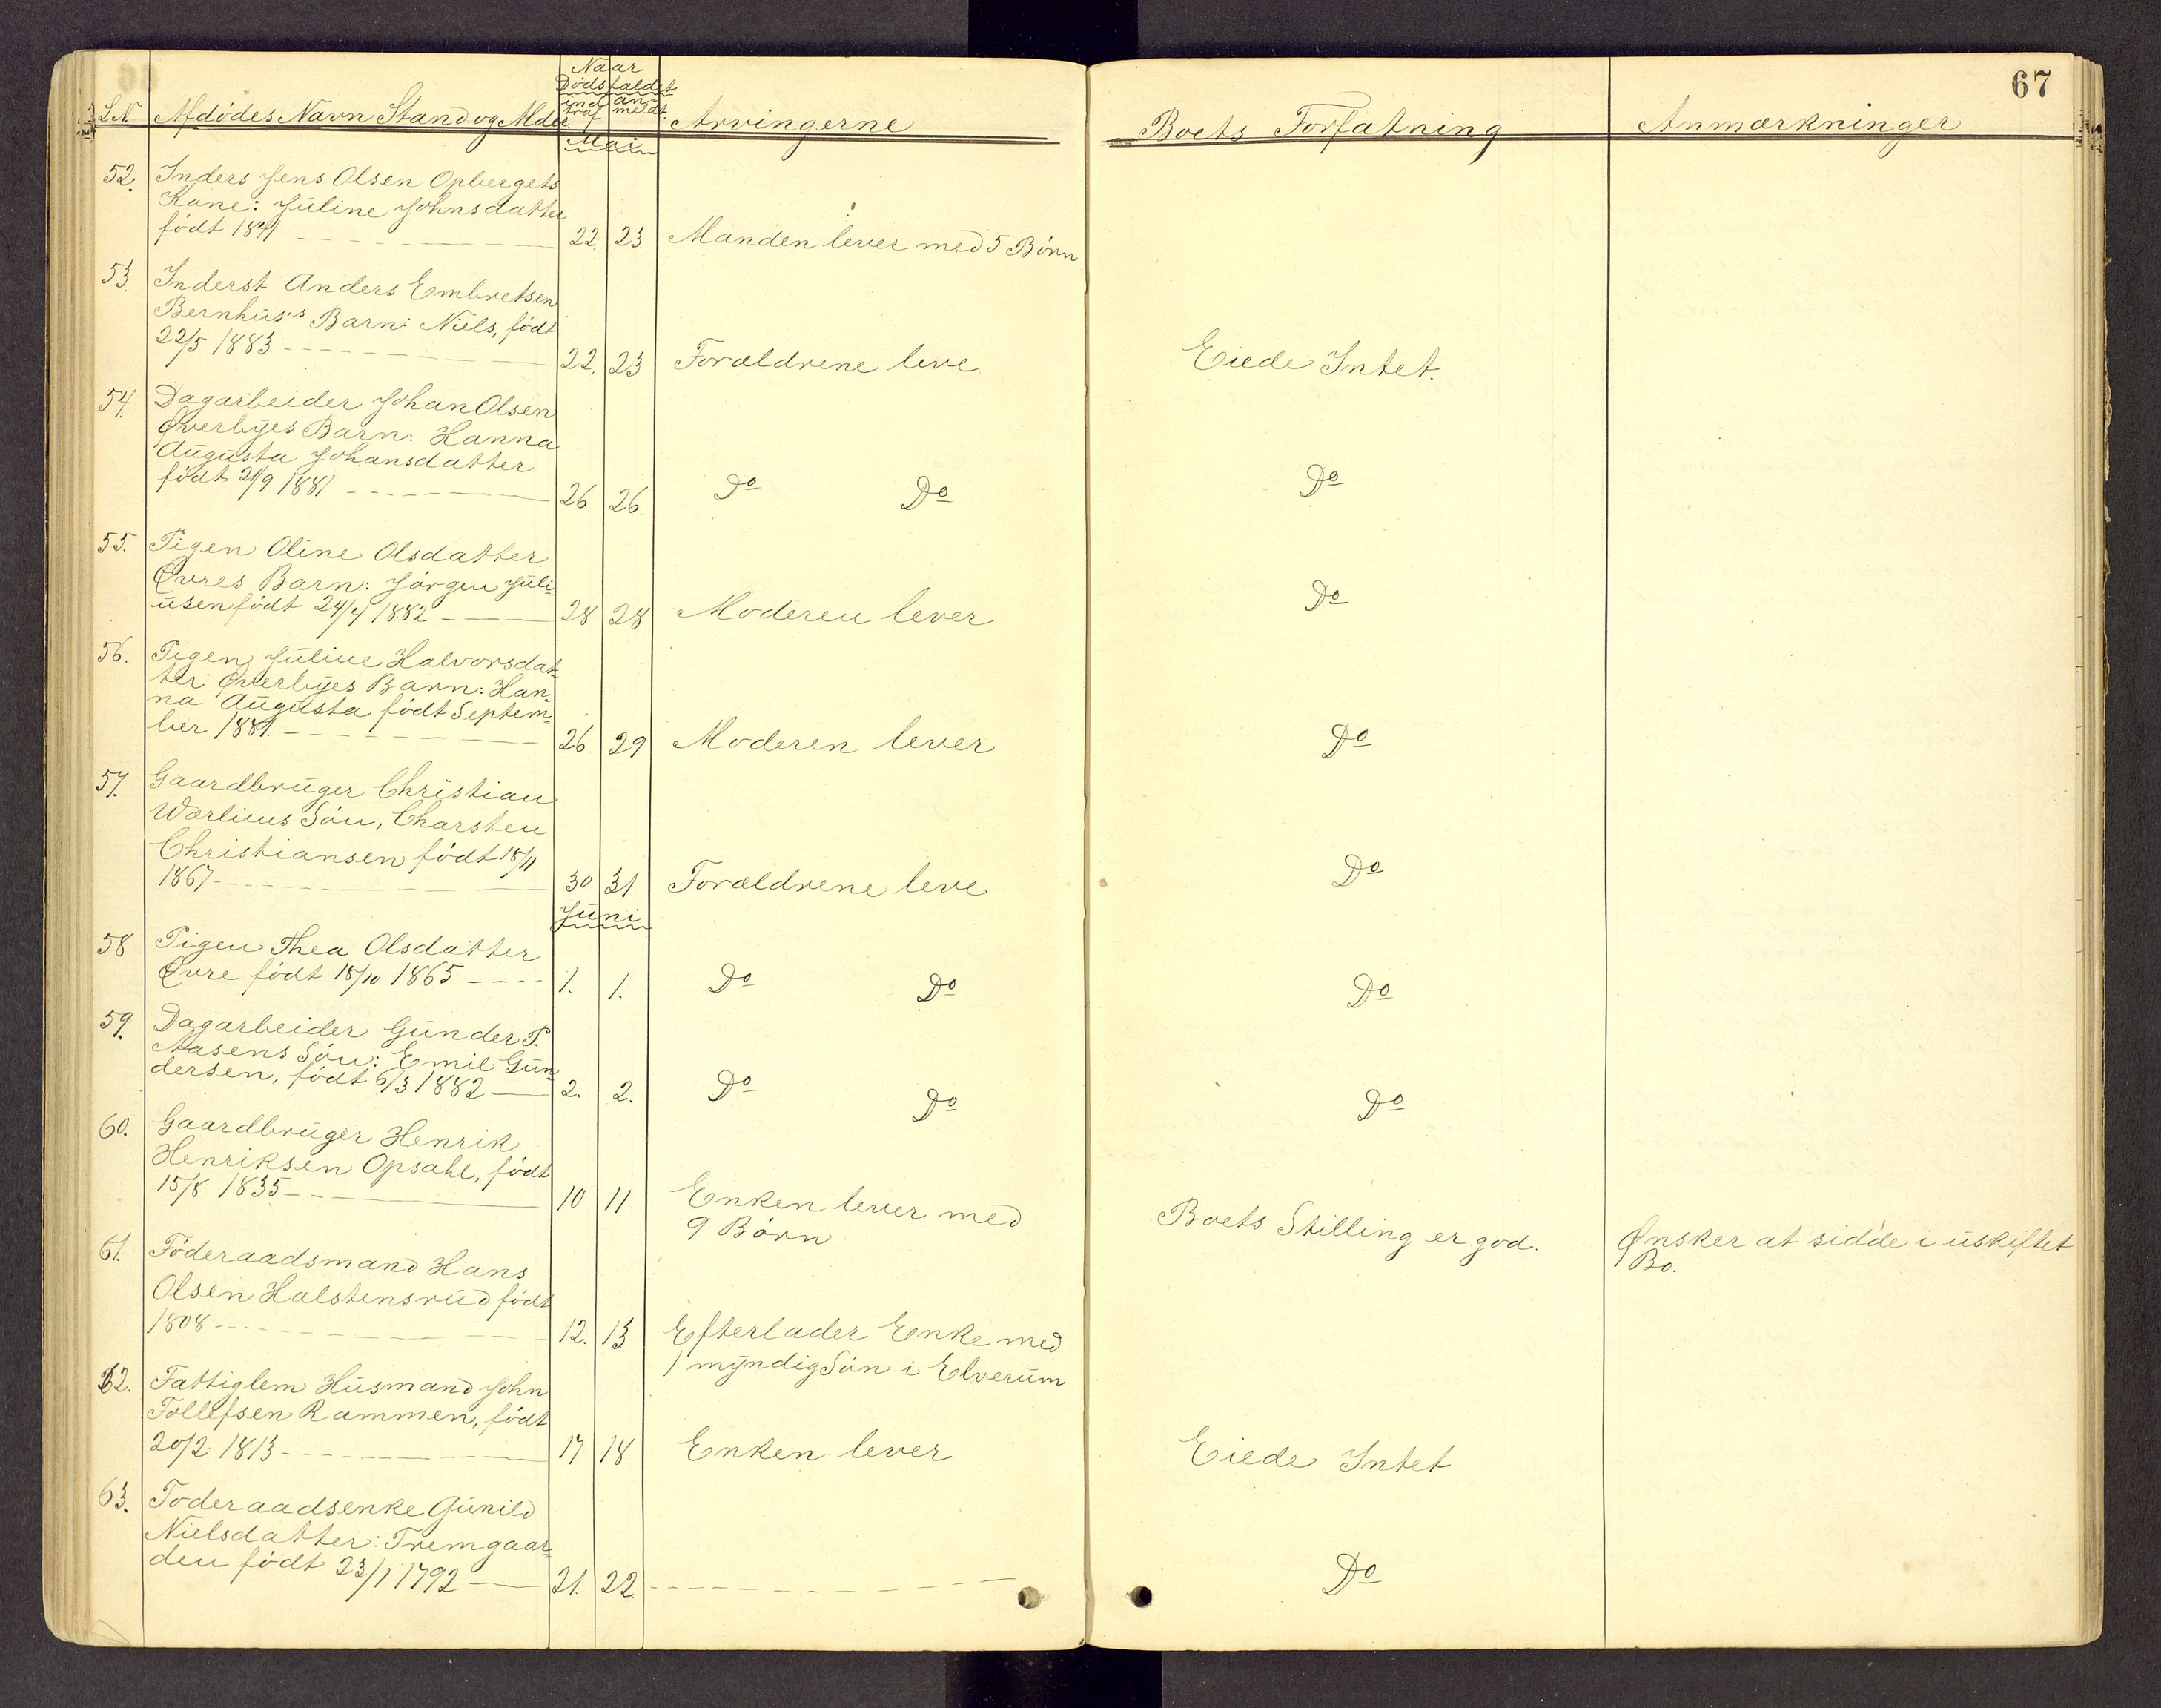 67
L.N. Afdødes Navn Stand og Alder Naar Dødsfaldet indtraf anmeldt. Arvingerne Boets Forfatning Anmærkninger
Mai
52. Inders Jens Olsen Opbergets
Kone: Juline Johnsdatter
født 1841 22. 23. Manden lever med 5 Børn
53. Inderst Anders Embretsen
Bernhus's Barn: Niels, født
22/5 1883 22. 23 Forældrene leve Eiede Intet.
54. Dagarbeider Johan Olsen
Øverbyes Barn: Hanna
Augusta Johansdatter
født 21/9 1881 26 26 Do Do Do
55. Pigen Oline Olsdatter
Øvres Barn: Jørgen Juli-
usen født 24/4 1882 28 28 Moderen lever Do
56. Pigen Juline Halvorsdat-
ter Øverbyes Barn: Han-
na Augusta født Septem-
ber 1881. 26 29 Moderen lever Do
57. Gaardbruger Christian
Wærlinns Søn, Charsten
Christiansen født 18/11
1867 30 31 Forældrene leve Do
Juni
58 Pigen Thea Olsdatter
Øvre født 18/10 1865 1. 1. Do Do Do
59. Dagarbeider Gunder P.
Aasens Søn: Emil Gun-
dersen, født 6/3 1882 2. 2. Do Do Do
60. Gaardbruger Henrik
Henriksen Opsahl, født
15/8 1835 10 11 Enken lever med Boets Stilling er god. Ønsker at sidde i uskiftet
9 Børn Bo.
61. Føderaadsmand Hans
Olsen Halstensrud født
1808 12. 13 Efterlader Enke med
1 myndig Søn i Elverum
62. Fattiglem Husmand John
Tollefsen Rammen, født
20/2 1813 17 18 Enken lever Eiede Intet
63. Foderaadsenke Gunild
Nielsdatter: Fremgaar-
den født 23/1 1792 21. 22. Do